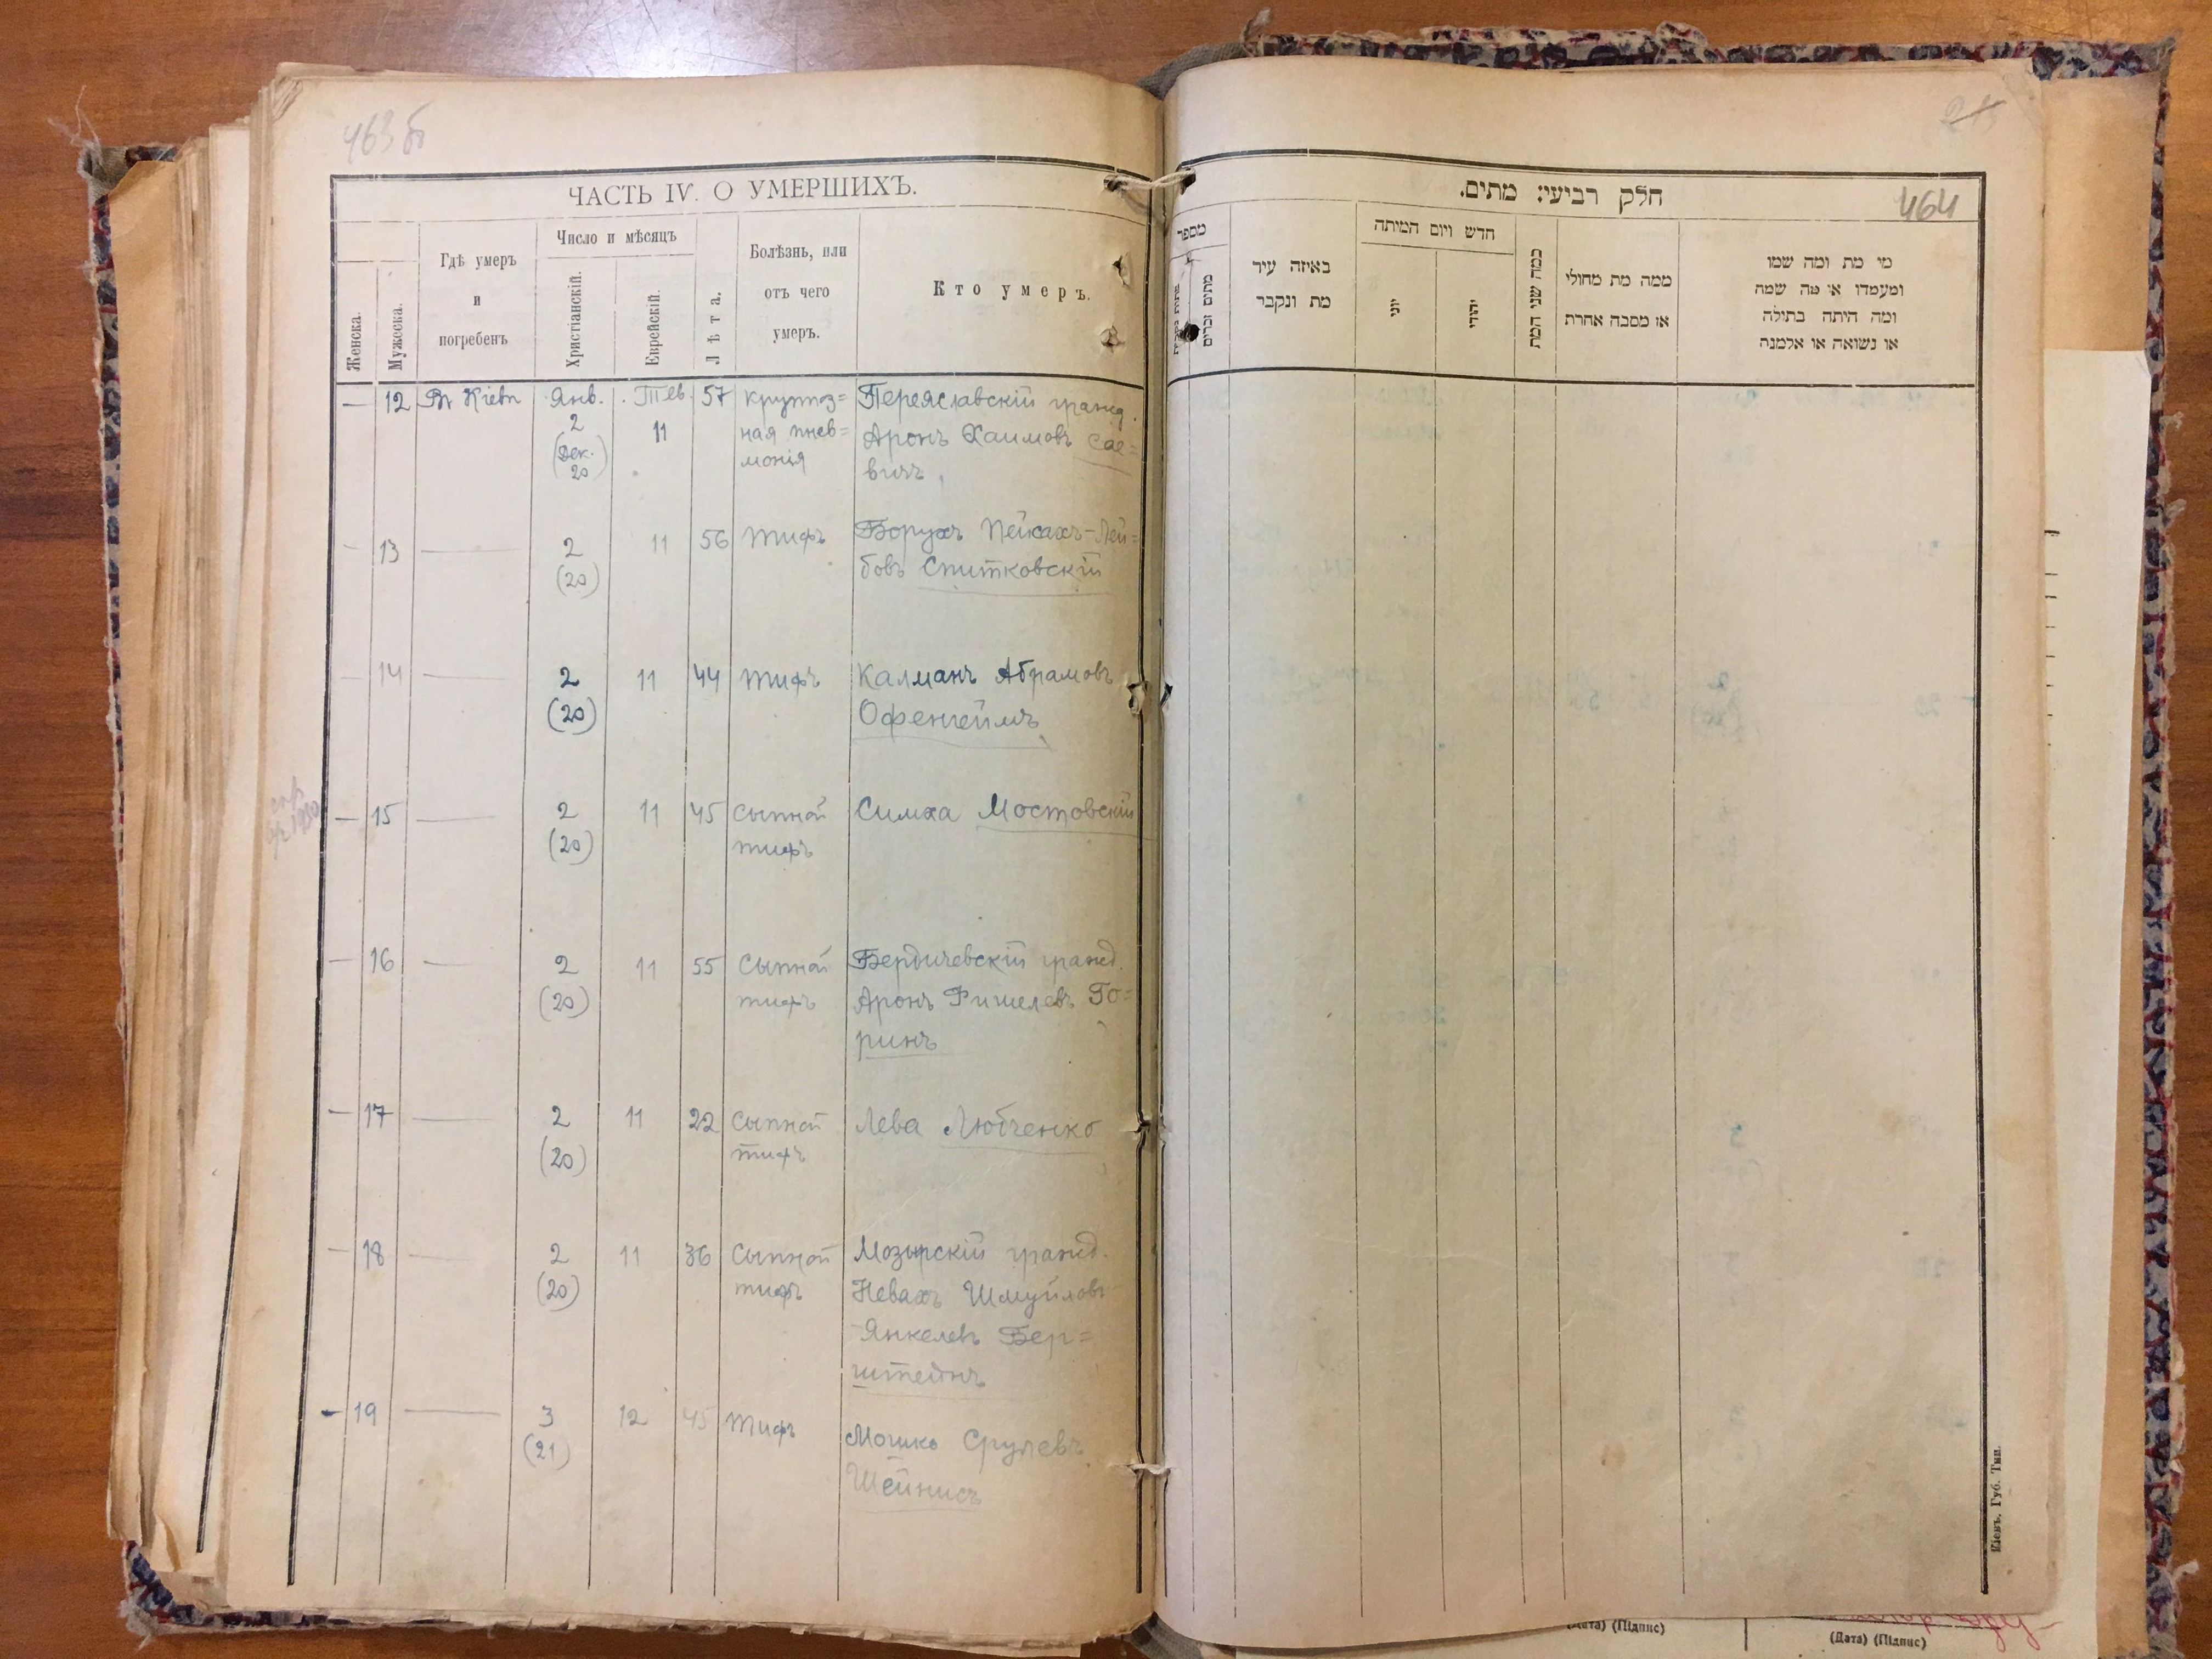 463 об
ЧАСТЬ IV. О УМЕРШИХЪ.
Женска.
Мужеска.
Гдѣ умеръ
и
погребенъ
Число и мѣсяцъ
Христіанскій.
Еврейскій.
Лѣта.
Болѣзнь, или
отъ чего
умеръ.
Кто умеръ.
— 12 Въ Кіевѣ Янв. Тев. 57 крупоз= Переяславскій гражд.
2 11 ная пнев= Аронъ Хаимовъ Сае=
(Дек. монія вичъ
20)
— 13 — 2 11 56 тифъ Борухъ Пейсахъ-Лей=
(20) бовъ Спитковскій
— 14 — 2 11 44 тифъ Калманъ Абрамовъ
(20) Офенгеймъ
— 15 — 2 11 45 сыпной Симха Мостовскій
(20) тифъ
— 16 — 2 11 55 сыпной Бердичевскій гражд.
(20) тифъ Аронъ Фишелевъ Го=
ринъ
— 17 — 2 11 22 сыпной Лева Любченко
(20) тифъ
— 18 — 2 11 36 сыпной Мозырскій гражд.
(20) тифъ Невахъ Шмуйловъ
-Янкелевъ Бер=
штейнъ
- 19 — 3 12 45 тифъ Мошко Срулевъ
(21) Шейнисъ
464
חלק רביעי: מתים.
מספר
מתים זכרים
באיזה עיר
מת ונקבר
חדש ויום המיתה
יוני
יהודי
כמה שני המת
ממה מת מחולי
או מסבה אחרת
מי מת ומה שמו
ומעמדו או מה שמה
ומה היתה בתולה
או נשואה או אלמנה
Кіевъ. Губ. Тип.
(Дата) (Підпис)
(Дата) (Підпис)